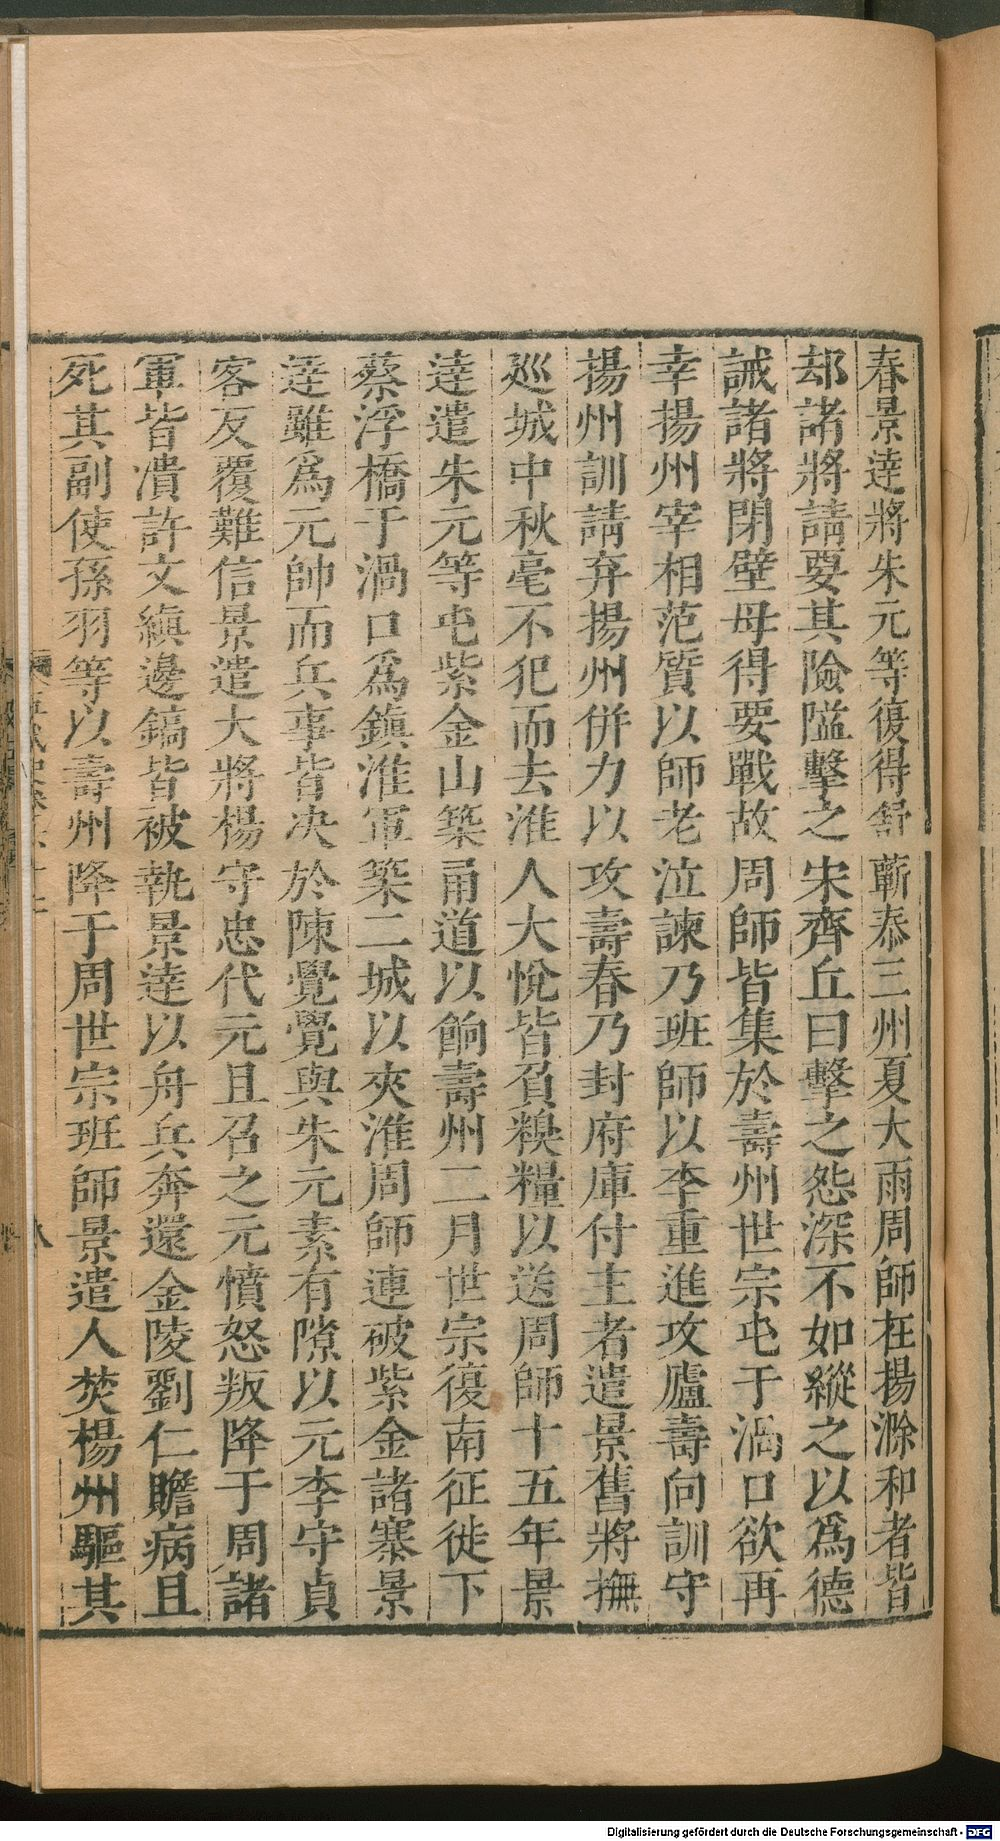 春景逹將朱元等復得舒蘄㤗三州夏大雨周師在揚滁和者皆
却諸將請要其險隘擊之宋齊丘曰擊之怨深不如縱之以爲德
誡諸將閉壁毋得要戰故周師皆集於壽州世宗屯于渦口欲再
幸揚州宰相范質以師老泣諫乃班師以李重進攻廬壽向訓守
揚州訓請弃揚州併力以攻壽春乃封府庫付主者遣景舊將撫
巡城中秋毫不犯而去淮人大悅皆負糗糧以送周師十五年景
逹遣朱元等屯紫金山築甬道以餉壽州二月世宗復南征徙下
蔡浮橋于渦口爲鎮淮軍築二城以夾淮周師連破紫金諸寨景
逹雖爲元帥而兵事皆决於陳覺覺與朱元素有隙以元李守貞
客反覆難信景遣大將楊守忠代元且召之元憤怒叛降于周諸
軍皆潰許文縝邊鎬皆被執景逹以舟兵奔還金陵劉仁贍病且
死其副使孫羽等以壽州降于周世宗班師景遣人焚楊州驅其
八
Digitalisierung gefördert durch die Deutsche Forschungsgemeinschaft - DFG